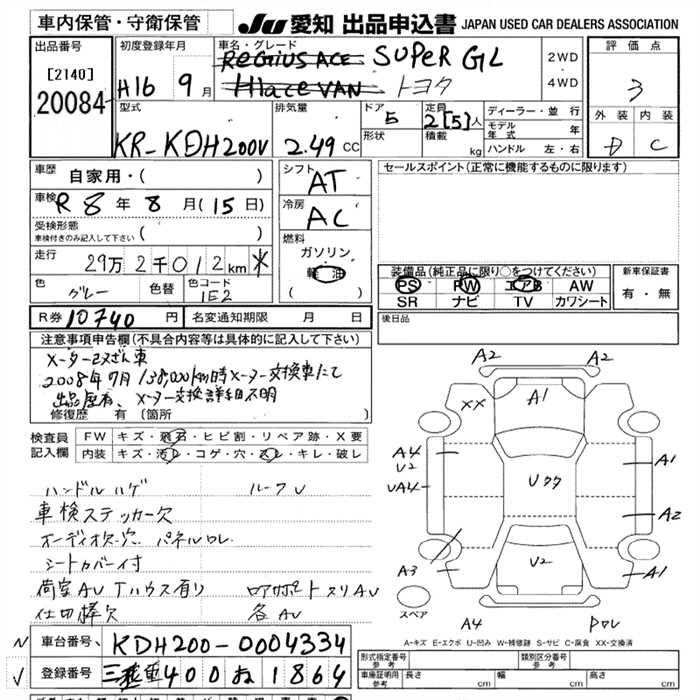 車内保管・守衛保管
JU 愛知 出品申込書 JAPAN USED CAR DEALERS ASSOCIATION
出品番号
[2140]
20084
初度登録年月
H16 9月
車名・グレード
REGIUS ACE SUPER GL
HIACE VAN トヨタ
2WD
・
4WD
評価点
3
外装 内装
D C
型式
KR-KDH200V
排気量
2.49 CC
ドア
5
形状
定員
2[5]人
積載
kg
ディーラー・並行
モデル年式 年
ハンドル 左・右
車歴
自家用・( )
車検
R8年8月(15日)
受検形態
車検付きのみ記入して下さい ( )
走行
29万2千012km *
色
グレー
色替
色コード
1E2
シフト
AT
冷房
AC
燃料
ガソリン
軽油
( )
セールスポイント(正常に機能するものに限ります)
装備品(純正品に限り○をつけてください)
PS PW エアB AW
SR ナビ TV カワシート
新車保証書
有・無
R券 10740円
名変通知期限 月 日
後日品
注意事項申告欄(不具合内容等は具体的に記入して下さい)
メーター改ざん車
2008年7月 138,000km時メーター交換車にて
メーター交換詳細不明
修復歴 有 (箇所
検査員記入欄
FW キズ・飛石・ヒビ割・リペア跡・X要
内装 キズ・汚れ・コゲ・穴・スレ・キレ・破レ
ハンドルハゲ ルーフU
車検ステッカー欠
オーディオ欠・穴 パネルワレ
シートカバー付
荷室AU Tハウス有り
仕切棒欠 各AU
A2 A2
XX A1
A4
U2
UA4
Uクク
A1
A2
A3
U2
A1
スペア
A4
A-キズ E-エクボ U-凹み W-補修跡 S-サビ C-腐食 XX-交換済
車台番号 KDH200-0004334
登録番号 三重400ね1864
形式指定番号
参考
類別区分番号
参考
車庫証明用
参考
長さ cm
幅 cm
高さ cm